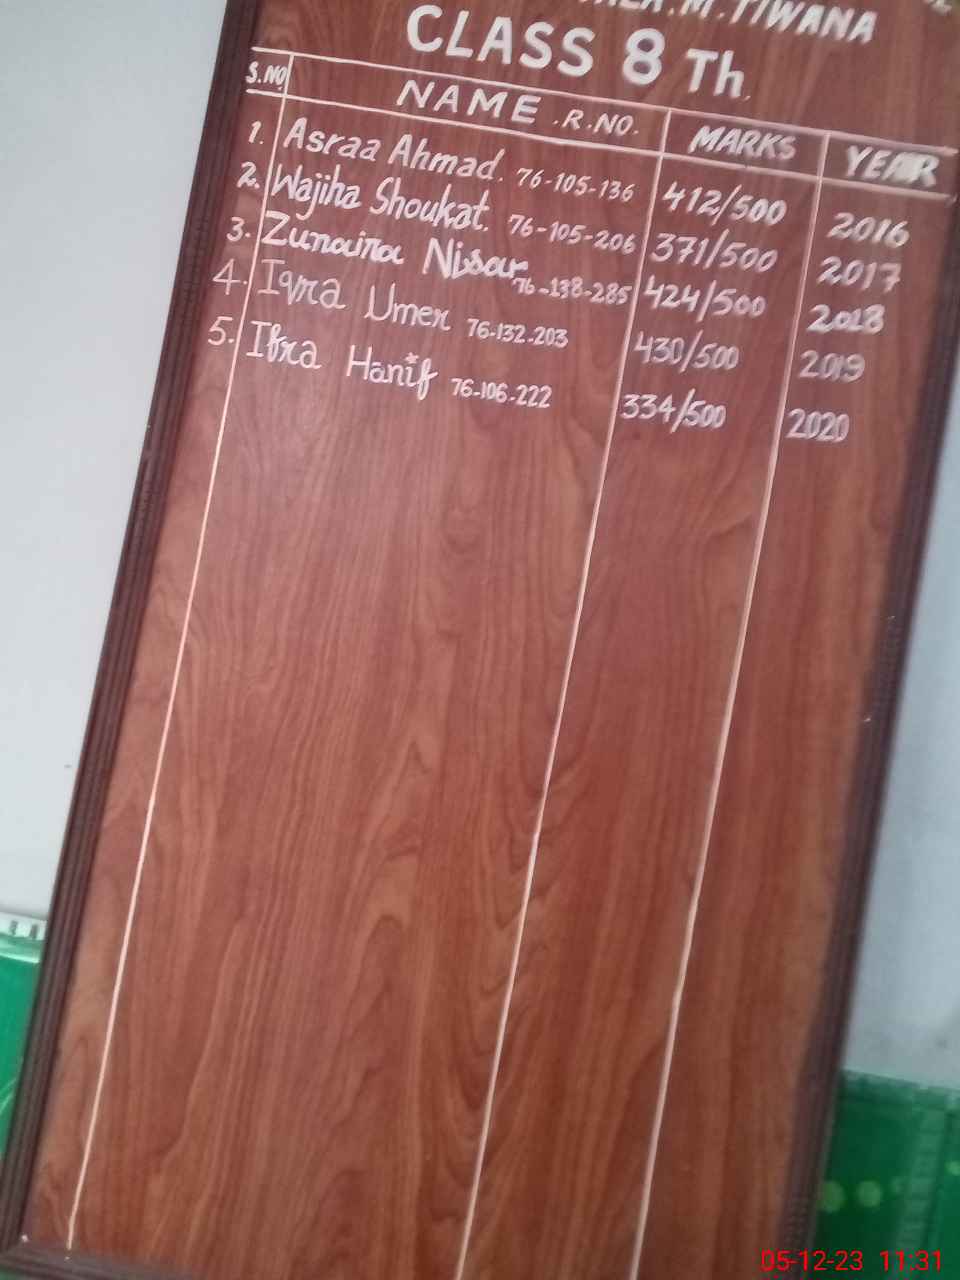 M. TIWANA
CLASS 8 Th.
S.NO NAME .R.NO. MARKS YEAR
1. Asraa Ahmad. 76-105-136 412/500 2016
2. Wajiha Shoukat. 76-105-206 371/500 2017
3. Zunaira Nisar 76-138-285 424/500 2018
4. Iqra Umer 76-132-203 430/500 2019
5. Ifra Hanif 76-106-222 334/500 2020
05-12-23 11:31